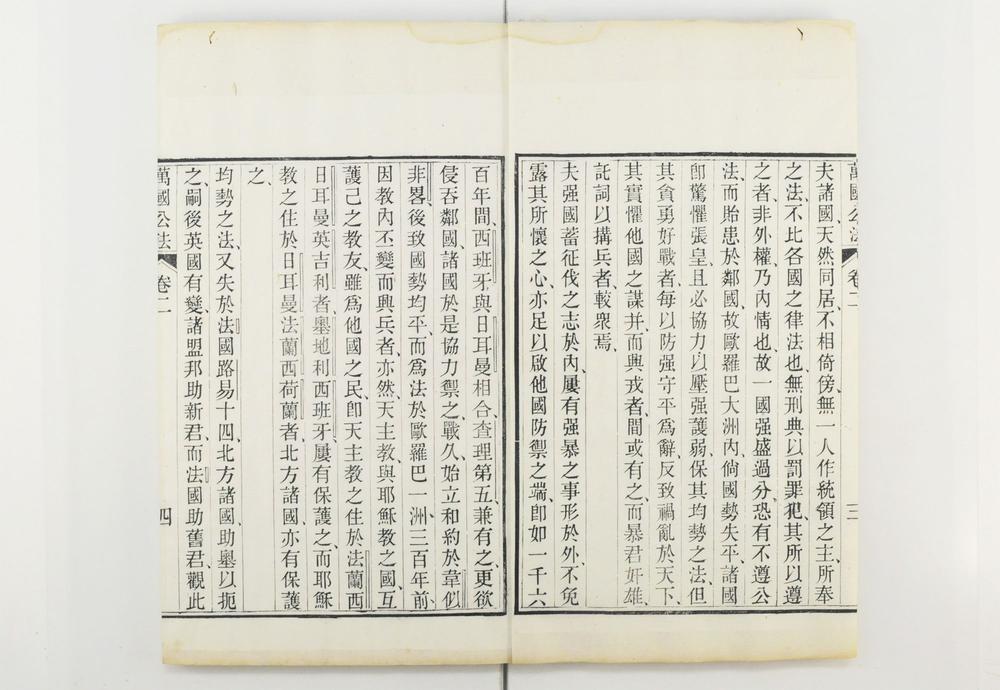 萬國公法 卷二 三
夫諸國、天然同居、不相倚傍、無一人作統領之主、所奉
之法、不比各國之律法也、無刑典以罰罪犯、其所以遵
之者、非外權、乃內情也、故一國强盛過分、恐有不遵公
法、而貽患於鄰國、故歐羅巴大洲內、倘國勢失平、諸國
卽驚懼張皇、且必協力以壓强護弱、保其均勢之法、但
其貪勇好戰者、每以防强守平爲辭、反致禍亂於天下、
其實懼他國之謀并、而興戎者、間或有之、而暴君奸雄、
託詞以搆兵者、較衆焉、
夫强國蓄征伐之志於內、屢有强暴之事形於外、不免
露其所懷之心、亦足以啟他國防禦之端、卽如一千六
百年間、西班牙與日耳曼相合、查理第五兼有之、更欲
侵吞鄰國、諸國於是協力禦之、戰久始立和約於韋似
非畧、後致國勢均平、而爲法於歐羅巴一洲、三百年前
因教內丕變、而興兵者、亦然、天主教與耶穌教之國、互
護己之教友、雖爲他國之民、卽天主教之住於法蘭西
日耳曼英吉利者、墺地利西班牙屢有保護之、而耶穌
教之住於日耳曼法蘭西荷蘭者、北方諸國、亦有保護
之、
均勢之法、又失於法國路易十四、北方諸國、助墺以扼
之、嗣後英國有變、諸盟邦助新君、而法國助舊君、觀此
萬國公法 卷二 四